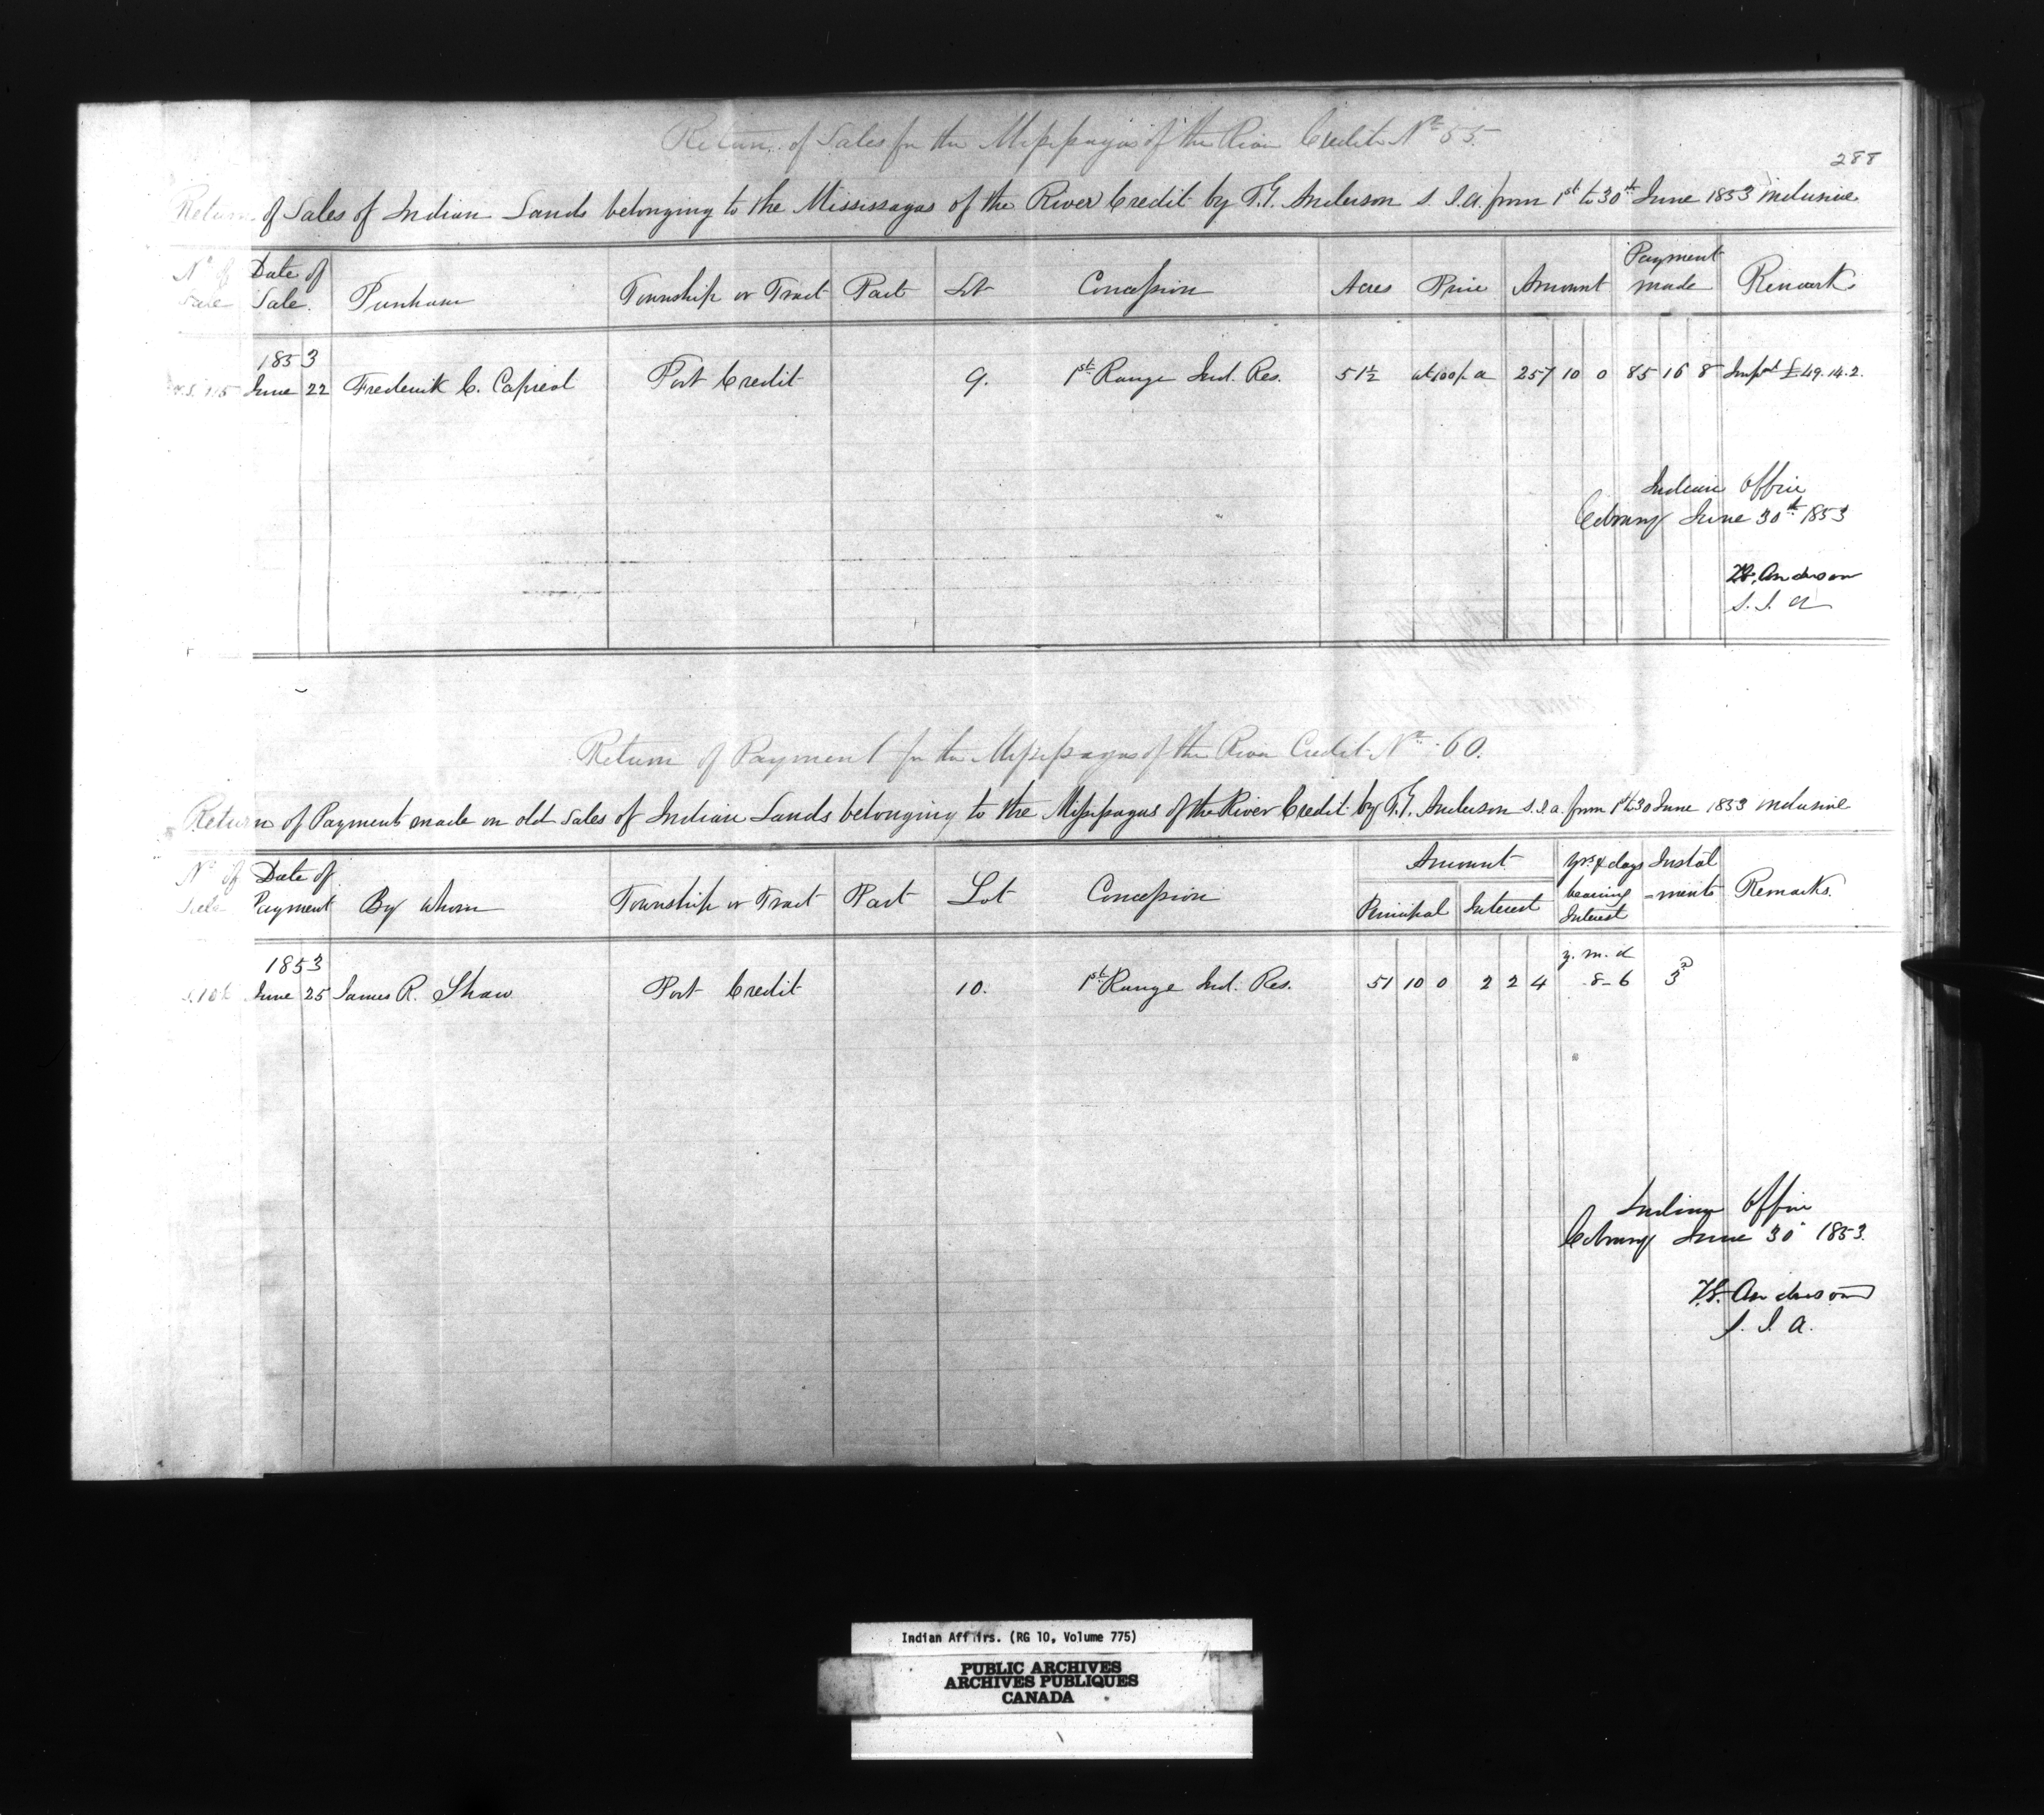 Return of Sales for the Missisagas of the River Credit Nº 55.
288
Return of Sales of Indian Lands belonging to the Mississagas of the River Credit by T.G. Anderson S.I.A. from 1st to 30th June 1853 inclusive
Nº of Sale Date of Sale. Purchaser Township or Tract Part Lot Concession Acres Price Amount Payment made Remarks
1853
115 June 22 Frederick C. Capreol Port Credit 9. 1st Range Ind. Res. 51½ at 100/. a 257 10 0 85 16 8 Impts £49.14.2.
Indian Office
Cobourg June 30th 1853
T.G. Anderson
S.I.A
Return of Payment for the Missisagas of the River Credit Nº 60.
Return of Payments made on old Sales of Indian Lands belonging to the Missisagas of the River Credit by T.G. Anderson S.I.A. from 1st to 30 June 1853 inclusive
Nº of Sale Date of Payment By whom Township or Tract Part Lot Concession Amount Principal Interest yrs & days bearing Interest Instal-ments Remarks.
1853 y. m. d
June 25 James R. Shaw Port Credit 10. 1st Range Ind. Res. 51 10 0 2 2 4 -8-6 3d
Indian Office
Cobourg June 30 1853.
T.G. Anderson
S.I.A.
Indian Affairs. (RG 10, Volume 775)
PUBLIC ARCHIVES
ARCHIVES PUBLIQUES
CANADA